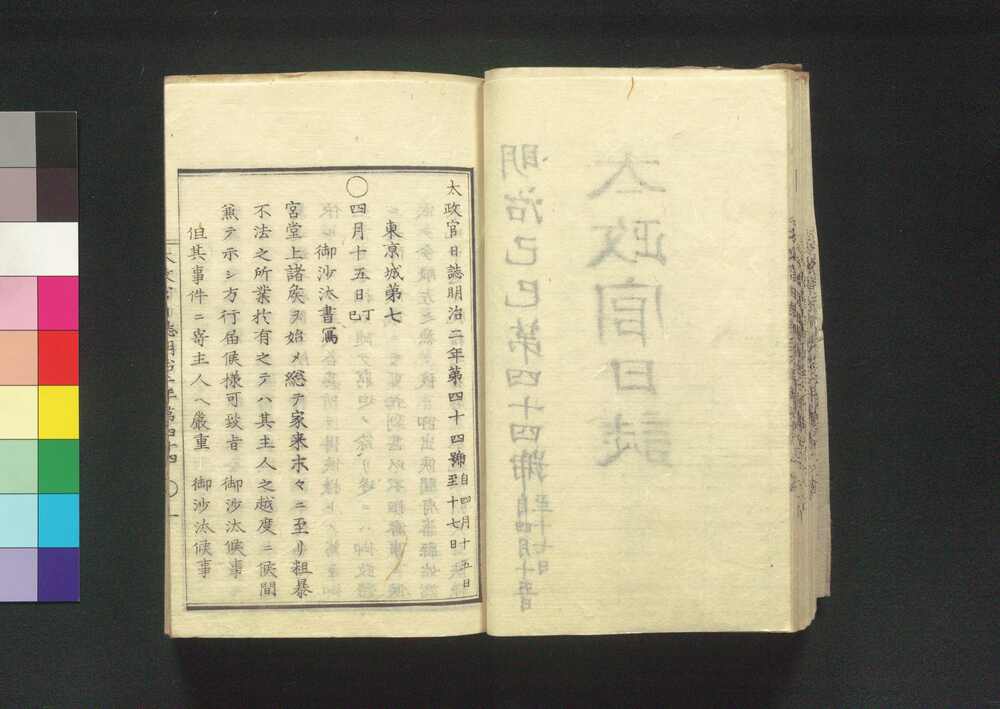 太政官日誌明治二年第四十四號 自四月十五日至十七日
東京城第七
○四月十五日 丁巳
御沙汰書寫
宮堂上諸矦ヲ始メ総テ家来末々ニ至リ粗暴
不法之所業扵有之テハ其主人之越度ニ候間
兼テ示シ方行届候様可致旨 御沙汰候事
但其事件ニ寄主人ヘ嚴重 御沙汰候事
太政官日誌
明治己巳第四十四號 自四月十五日至十七日